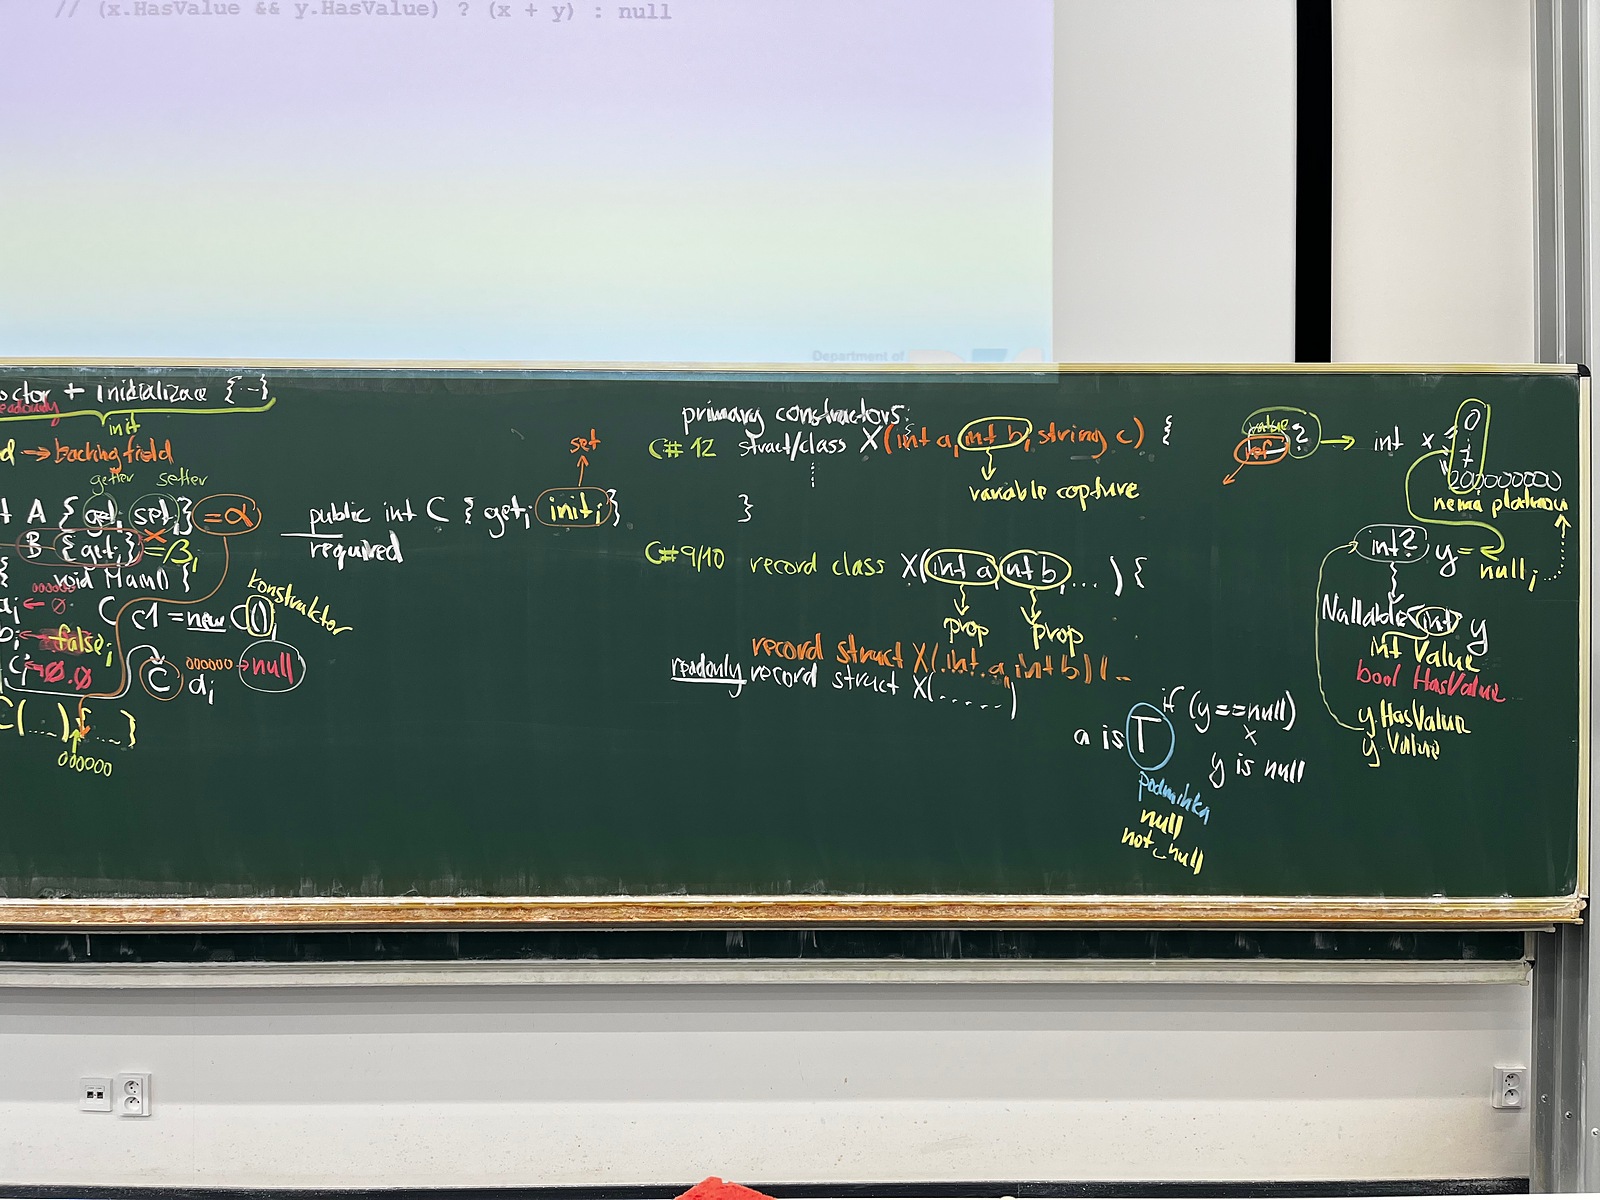 // (x.HasValue && y.HasValue) ? (x + y) : null
Department of
octor + inicializace {...}
readonly
init
d → backing field
getter setter
t A { get; set; } = α
B { get; } = β;
{ void Main() {
000000
a; ← 0
C c1 = new C();
konstruktor
b; ← false;
C; ← 0.0
C d; 000000 → null
C(...){ ... }
000000
set
public int C { get; init; }
required
primary constructors:
C# 12 struct/class X(int a, int b, string c) {
variable capture
}
C# 9/10 record class X(int a, int b, ...) {
prop prop
record struct X(int a, int b) {...
readonly record struct X(.....)
a is T
podmínka
null
not null
if (y==null)
x
y is null
value
ref
? → int x =
0
1
200000000
nemá platnou
int? y = null;
Nullable<int> y
int Value
bool HasValue
y.HasValue
y.Value